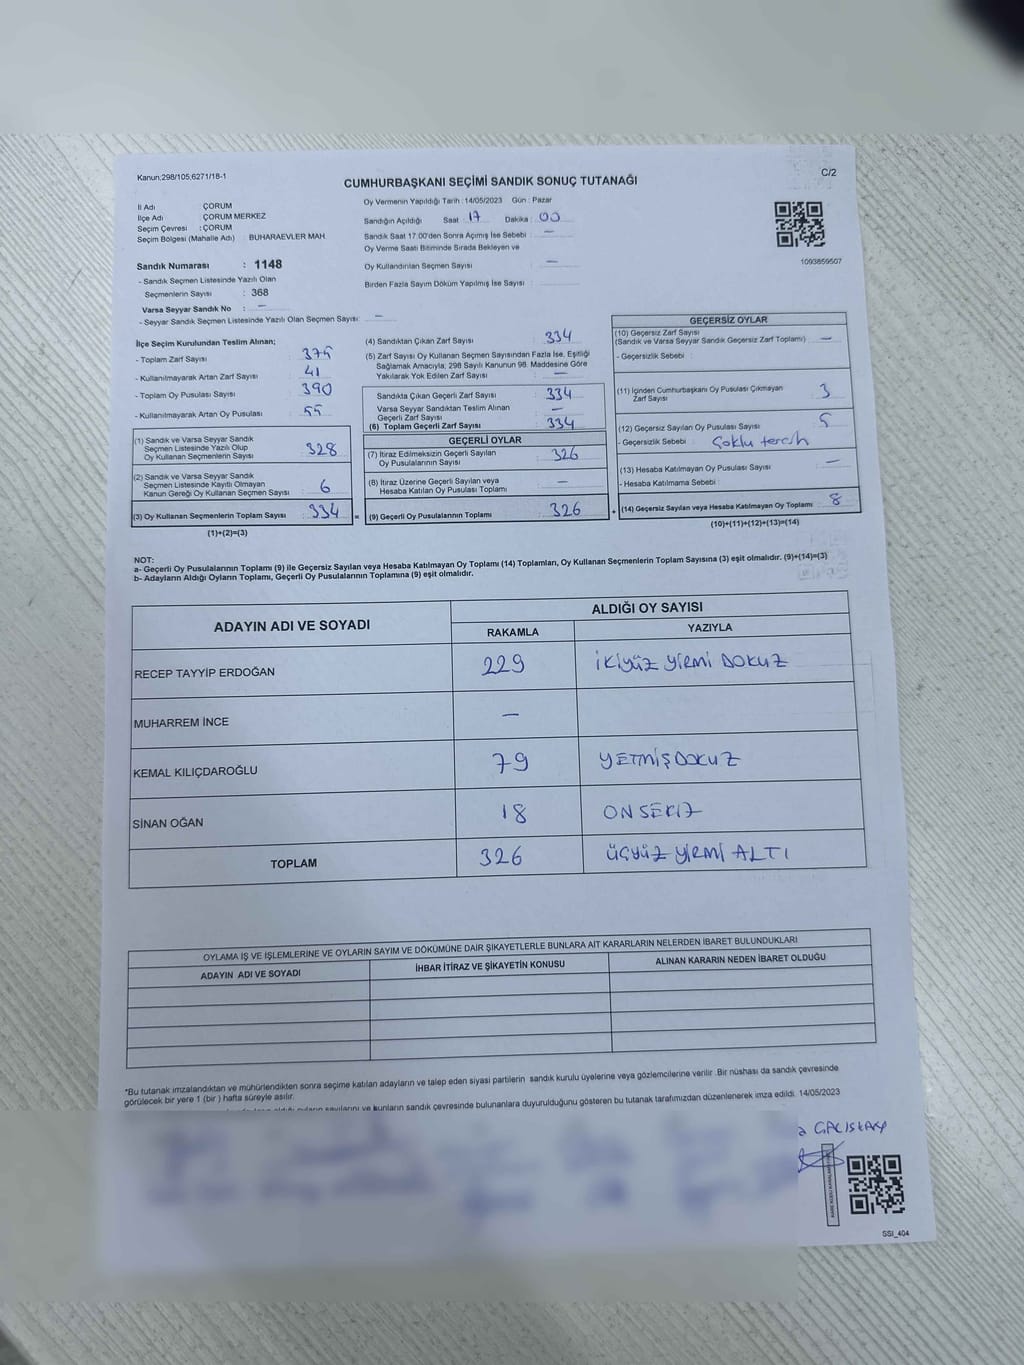 Kanun;298/105,6271/18-1
C/2
CUMHURBAŞKANI SEÇİMİ SANDIK SONUÇ TUTANAĞI
İl Adı ÇORUM
İlçe Adı ÇORUM MERKEZ
Seçim Çevresi : ÇORUM
Seçim Bölgesi (Mahalle Adı) BUHARAEVLER MAH.
Sandık Numarası : 1148
- Sandık Seçmen Listesinde Yazılı Olan
Seçmenlerin Sayısı : 368
Varsa Seyyar Sandık No : —
- Seyyar Sandık Seçmen Listesinde Yazılı Olan Seçmen Sayısı: —
Oy Vermenin Yapıldığı Tarih : 14/05/2023 Gün : Pazar
Sandığın Açıldığı Saat : 17 Dakika : 00
Sandık Saat 17:00'den Sonra Açımış İse Sebebi : —
Oy Verme Saati Bitiminde Sırada Bekleyen ve
Oy Kullandırılan Seçmen Sayısı : —
Birden Fazla Sayım Döküm Yapılmış İse Sayısı :
1093859507
İlçe Seçim Kurulundan Teslim Alınan;
- Toplam Zarf Sayısı : 375
- Kullanılmayarak Artan Zarf Sayısı : 41
- Toplam Oy Pusulası Sayısı : 390
- Kullanılmayarak Artan Oy Pusulası : 55
(1) Sandık ve Varsa Seyyar Sandık
Seçmen Listesinde Yazılı Olup
Oy Kullanan Seçmenlerin Sayısı : 328
(2) Sandık ve Varsa Seyyar Sandık
Seçmen Listesinde Kayıtlı Olmayan
Kanun Gereği Oy Kullanan Seçmen Sayısı : 6
(3) Oy Kullanan Seçmenlerin Toplam Sayısı : 334
(1)+(2)=(3)
(4) Sandıktan Çıkan Zarf Sayısı : 334
(5) Zarf Sayısı Oy Kullanan Seçmen Sayısından Fazla İse, Eşitliği
Sağlamak Amacıyla; 298 Sayılı Kanunun 98. Maddesine Göre
Yakılarak Yok Edilen Zarf Sayısı : —
Sandıkta Çıkan Geçerli Zarf Sayısı : 334
Varsa Seyyar Sandıktan Teslim Alınan
Geçerli Zarf Sayısı : —
(6) Toplam Geçerli Zarf Sayısı : 334
GEÇERLİ OYLAR
(7) İtiraz Edilmeksizin Geçerli Sayılan
Oy Pusulalarının Sayısı : 326
(8) İtiraz Üzerine Geçerli Sayılan veya
Hesaba Katılan Oy Pusulası Toplamı : —
= (9) Geçerli Oy Pusulalarının Toplamı : 326 +
GEÇERSİZ OYLAR
(10) Geçersiz Zarf Sayısı
(Sandık ve Varsa Seyyar Sandık Geçersiz Zarf Toplamı) : —
- Geçersizlik Sebebi :
(11) İçinden Cumhurbaşkanı Oy Pusulası Çıkmayan
Zarf Sayısı : 3
(12) Geçersiz Sayılan Oy Pusulası Sayısı : 5
- Geçersizlik Sebebi : Çoklu tercih
(13) Hesaba Katılmayan Oy Pusulası Sayısı : —
- Hesaba Katılmama Sebebi :
(14) Geçersiz Sayılan veya Hesaba Katılmayan Oy Toplamı : 8
(10)+(11)+(12)+(13)=(14)
NOT:
a- Geçerli Oy Pusulalarının Toplamı (9) ile Geçersiz Sayılan veya Hesaba Katılmayan Oy Toplamı (14) Toplamları, Oy Kullanan Seçmenlerin Toplam Sayısına (3) eşit olmalıdır. (9)+(14)=(3)
b- Adayların Aldığı Oyların Toplamı, Geçerli Oy Pusulalarının Toplamına (9) eşit olmalıdır.
ADAYIN ADI VE SOYADI
ALDIĞI OY SAYISI
RAKAMLA YAZIYLA
RECEP TAYYİP ERDOĞAN 229 İKİYÜZ YİRMİ DOKUZ
MUHARREM İNCE —
KEMAL KILIÇDAROĞLU 79 YETMİŞDOKUZ
SİNAN OĞAN 18 ON SEKİZ
TOPLAM 326 ÜÇYÜZ YİRMİ ALTI
OYLAMA İŞ VE İŞLEMLERİNE VE OYLARIN SAYIM VE DÖKÜMÜNE DAİR ŞİKAYETLERLE BUNLARA AİT KARARLARIN NELERDEN İBARET BULUNDUKLARI
ADAYIN ADI VE SOYADI İHBAR İTİRAZ VE ŞİKAYETİN KONUSU ALINAN KARARIN NEDEN İBARET OLDUĞU
*Bu tutanak imzalandıktan ve mühürlendikten sonra seçime katılan adayların ve talep eden siyasi partilerin sandık kurulu üyelerine veya gözlemcilerine verilir. Bir nüshası da sandık çevresinde
görülecek bir yere 1 (bir ) hafta süreyle asılır.
bunların sandık çevresinde bulunanlara duyurulduğunu gösteren bu tutanak tarafımızdan düzenlenerek imza edildi. 14/05/2023
SSI_404